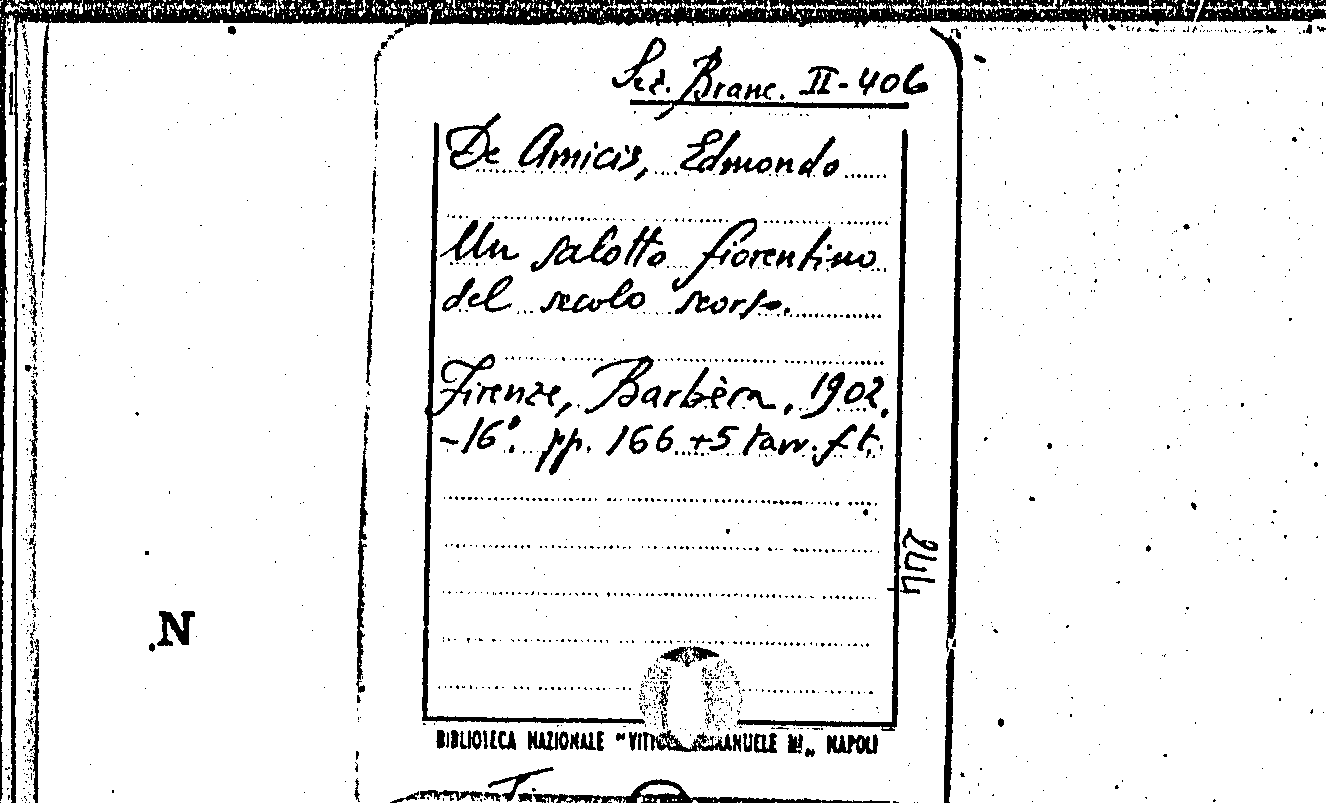 Sez. Branc. II-406
De Amicis, Edmondo
Un salotto fiorentino
del secolo scorso.
Firenze, Barbèra, 1902.
-16°. pp. 166 +5 tavv. f.t.
244
N
BIBLIOTECA NAZIONALE "VITTORIO EMANUELE III„ NAPOLI